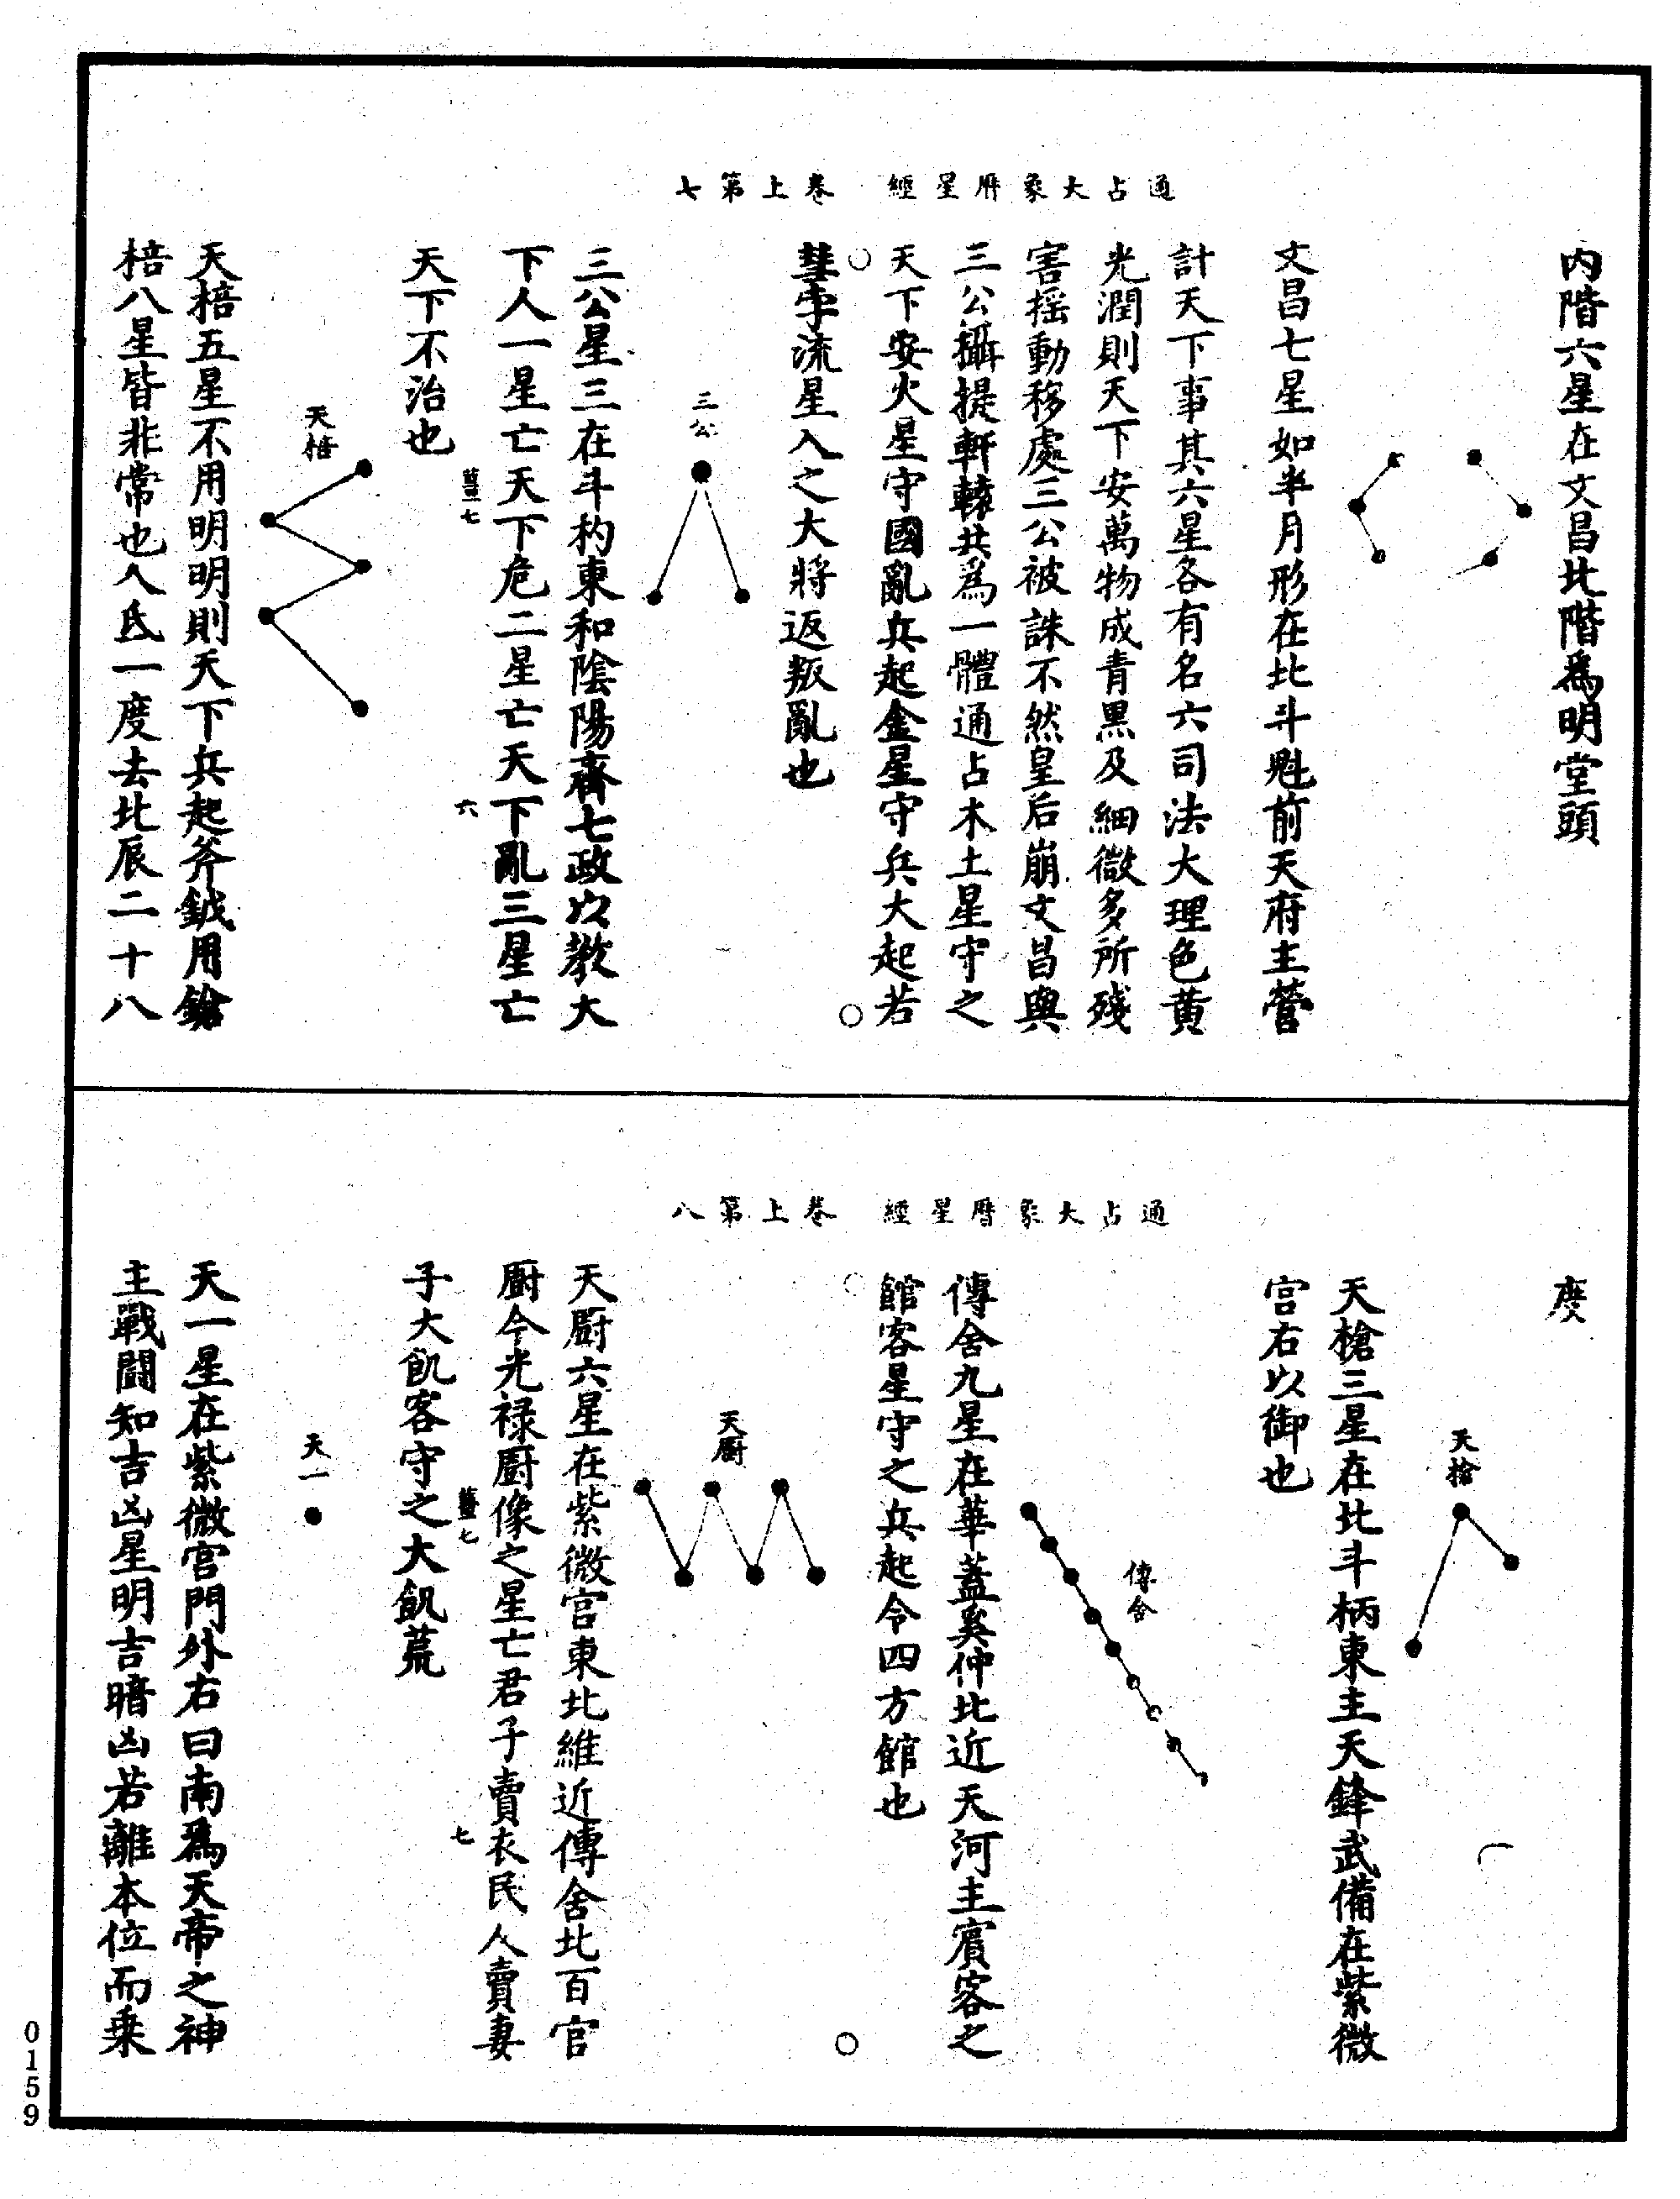 通占大象曆星經　卷上第七
內階六星在文昌北階爲明堂頭
文昌七星如半月形在北斗魁前天府主營
計天下事其六星各有名六司法大理色黃
光潤則天下安萬物成青黑及細微多所殘
害搖動移處三公被誅不然皇后崩文昌與
三公攝提軒轅共爲一體通占木土星守之
天下安火星守國亂兵起金星守兵大起若
彗孛流星入之大將返叛亂也
三公
三公星三在斗杓東和陰陽齊七政以教大
下人一星亡天下危二星亡天下亂三星亡
天下不治也
七
六
天棓
天棓五星不用明明則天下兵起斧鉞用鎗
棓八星皆非常也入氐一度去北辰二十八
通占大象曆星經　卷上第八
度
天槍
天槍三星在北斗柄東主天鋒武備在紫微
宮右以御也
傳舍
傳舍九星在華蓋奚仲北近天河主賓客之
館客星守之兵起令四方館也
天厨
天厨六星在紫微宮東北維近傳舍北百官
厨今光祿厨像之星亡君子賣衣民人賣妻
子大飢客守之大飢荒
七
七
天一
天一星在紫微宮門外右曰南爲天帝之神
主戰鬪知吉凶星明吉暗凶若離本位而乘
0159